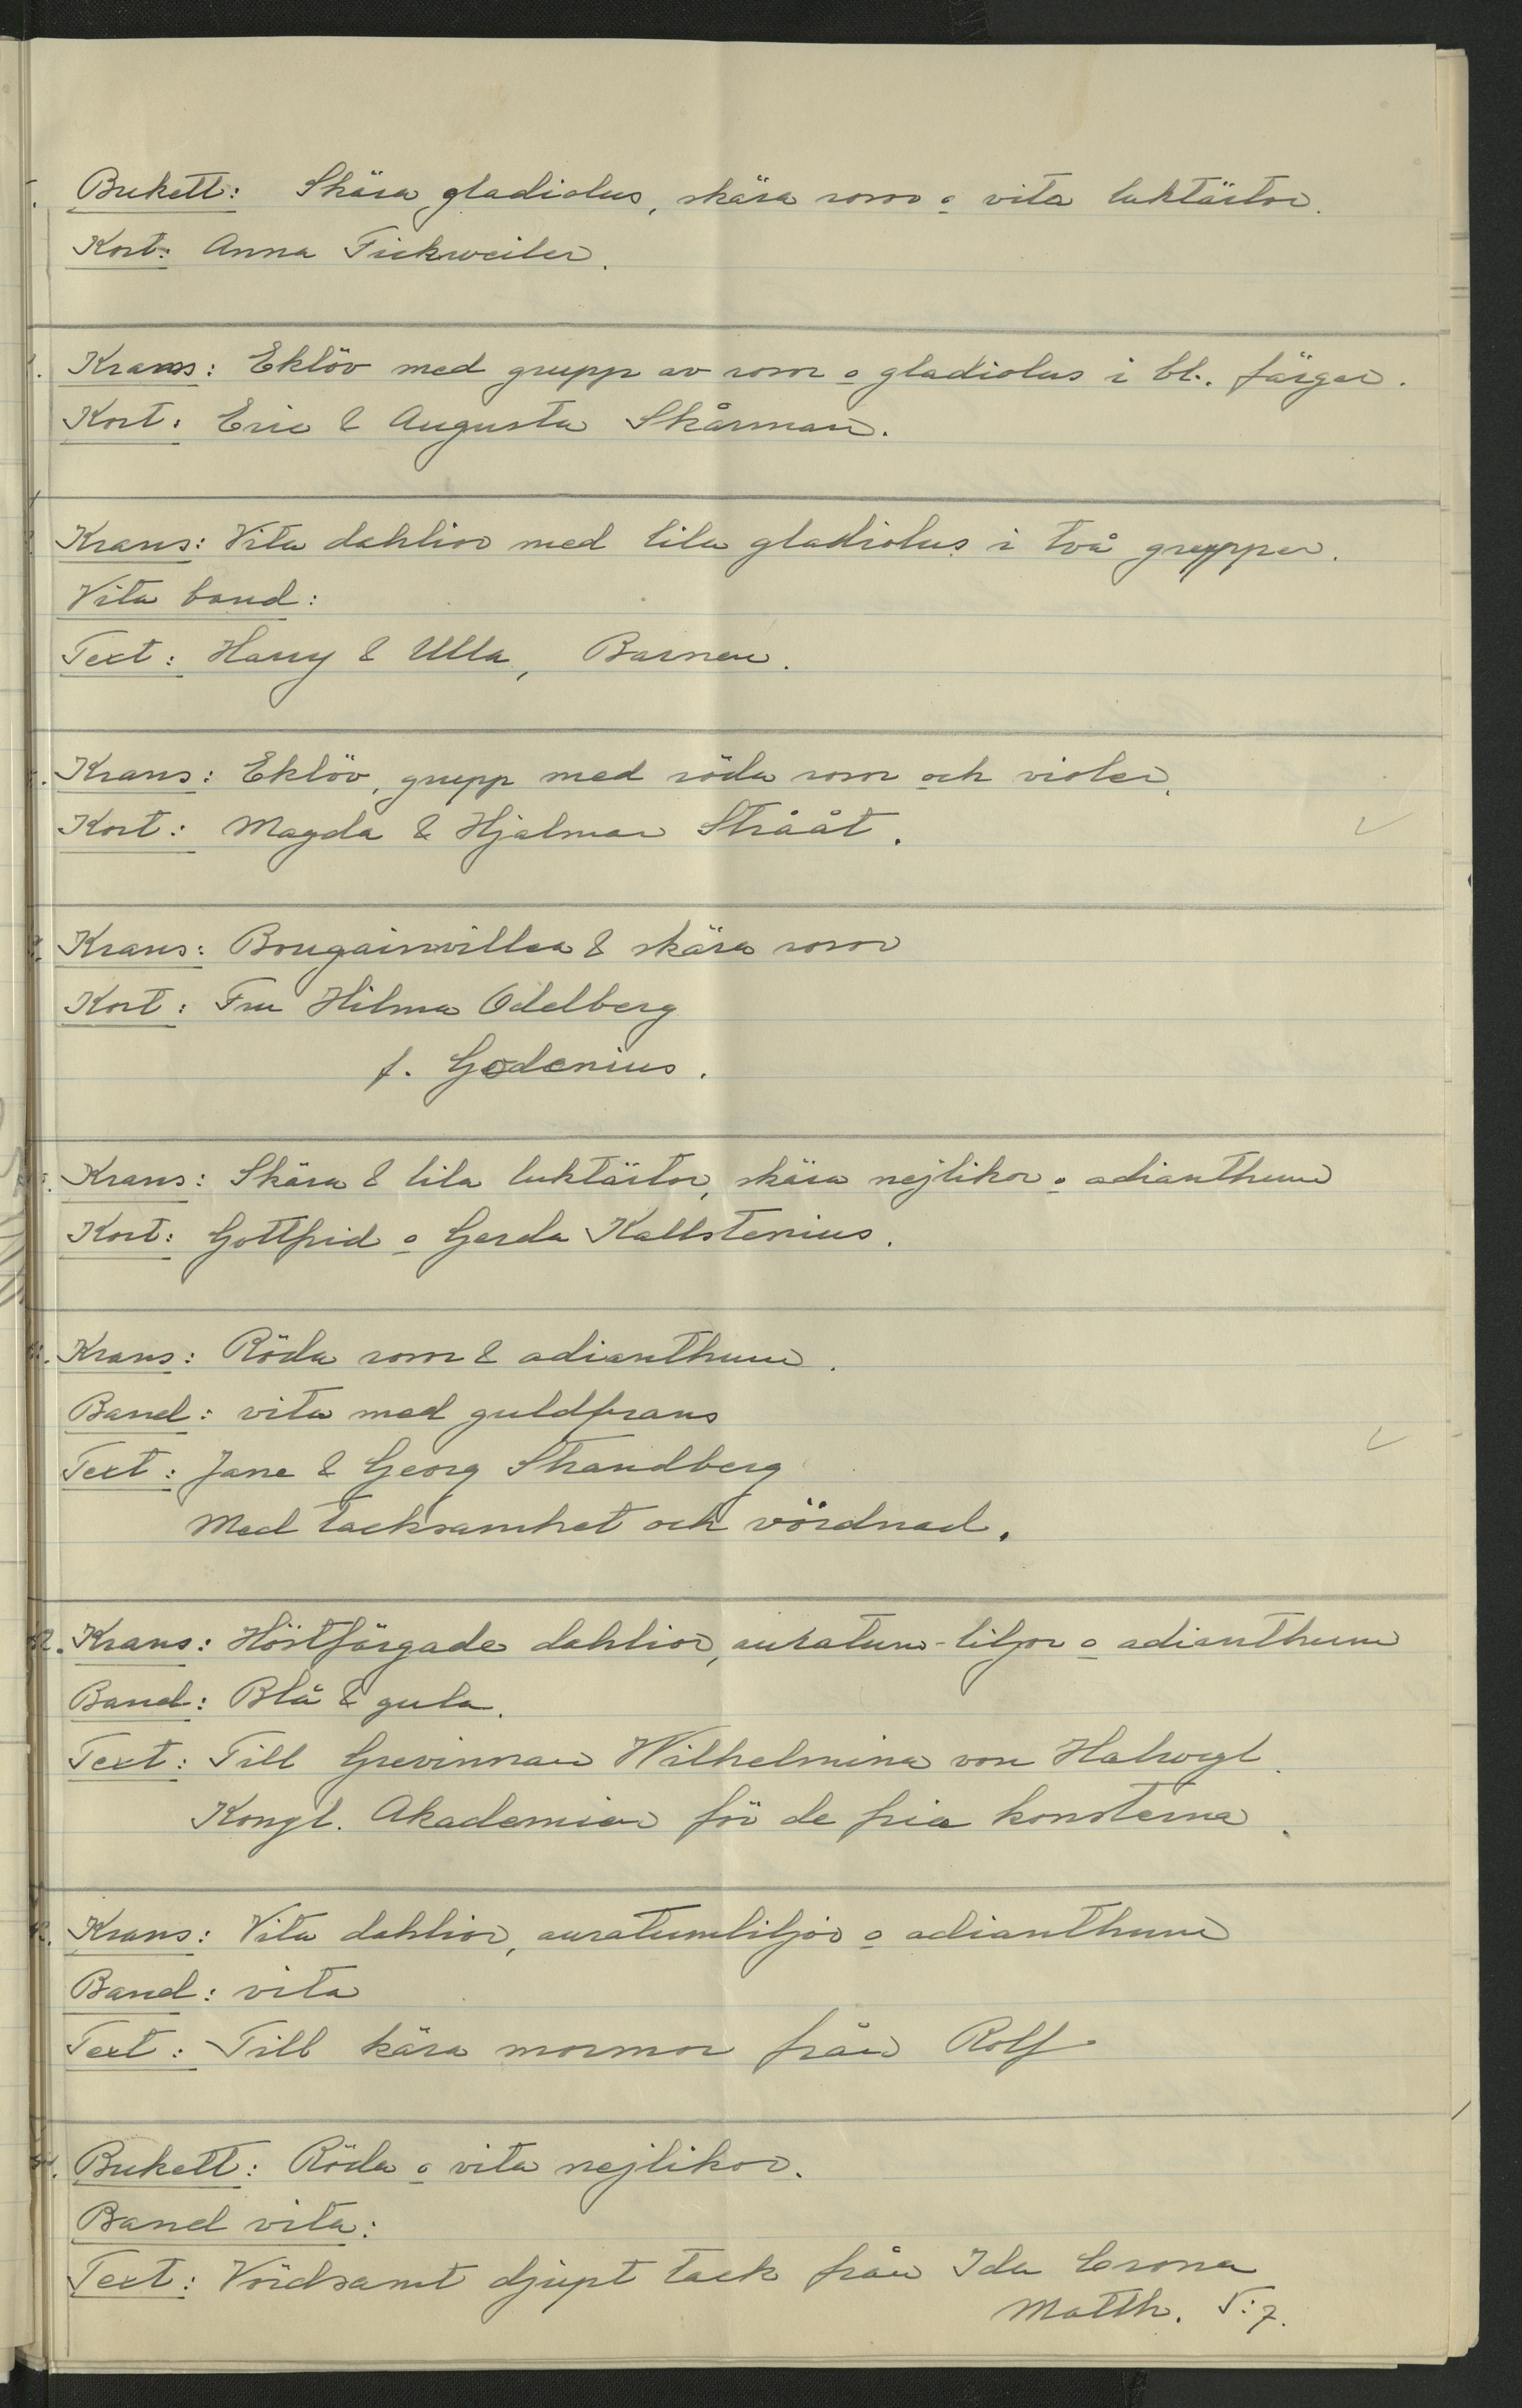 Bukett: Skära gladiolus, skära rosor o vita luktärtor.
Kort: Anna Fickweiler.
Krans: Eklöv med grupp av rosor o gladiolus i bl. färger.
Kort: Eric & Augusta Skårman.
Krans: Vita dahlior med lila gladiolus i två grupper.
Vita band:
Text: Harry & Ulla, Barnen.
Krans: Eklöv, grupp med röda rosor och violer.
Kort: Magda & Hjalmar Strååt.
Krans: Bougainvillea & skära rosor
Kort: Fru Hilma Odelberg
f. Godenius.
Krans: Skära & lila luktärtor, skära nejlikor o adianthum
Kort: Gottfrid o Gerda Kallstenius.
Krans: Röda rosor & adianthum.
Band: vita med guldfrans
Text: Jane & Georg Strandberg
Med tacksamhet och vördnad.
Krans: Höstfärgade dahlior, auratum-liljor o adianthum
Band: Blå & gula.
Text: Till Grevinnan Wilhelmina von Halwyl.
Kongl. Akademien för de fria konsterna.
Krans: Vita dahlior, auratumliljor o adianthum
Band: vita
Text: Till kära mormor från Rolf
Bukett: Röda o vita nejlikor.
Band vita:
Text: Vördsamt djupt tack från Ida Crona
Matth. 5:7.